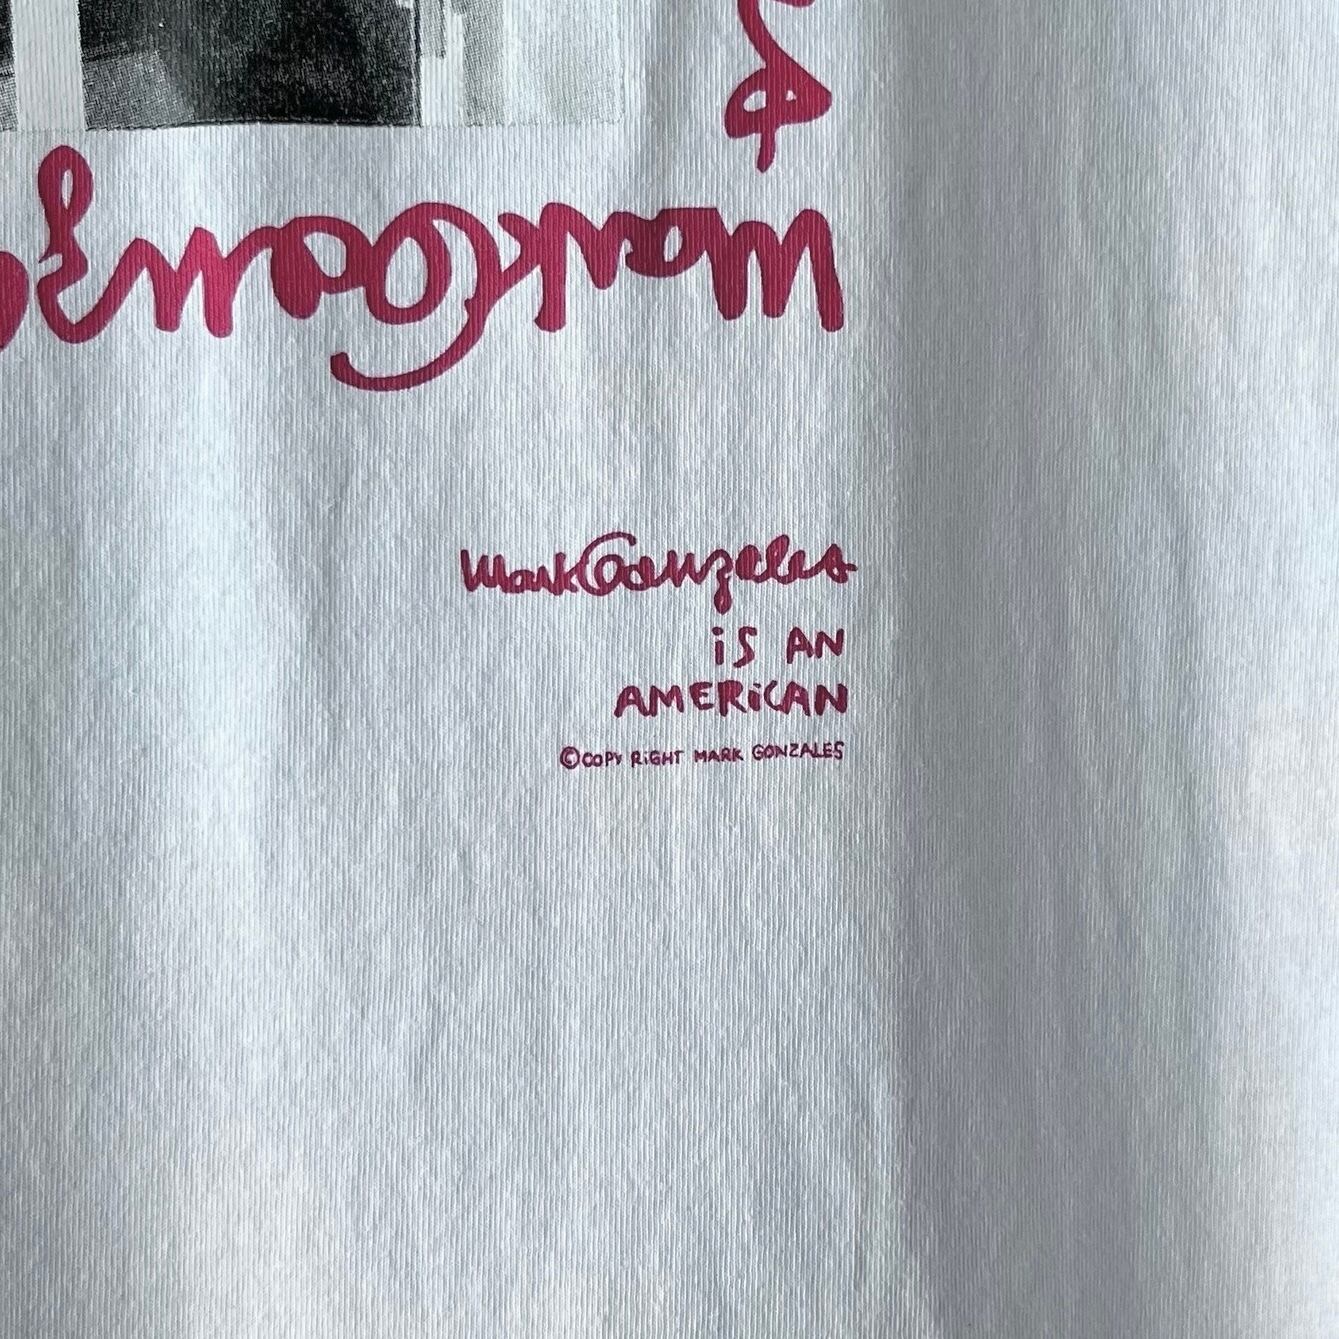 Mark Gonz
Mark Gonzales
iS AN
AMERiCAN
©COPY RiGHT MARK GONZALES